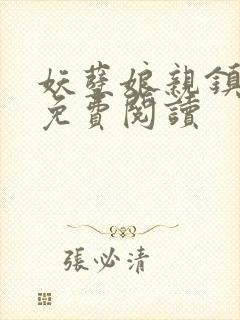 妖孽娘親鎮
免費閱讀
張必清